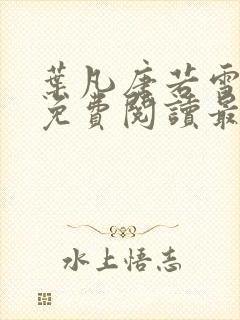 葉凡唐若雪
免費閱讀最
水上悟志